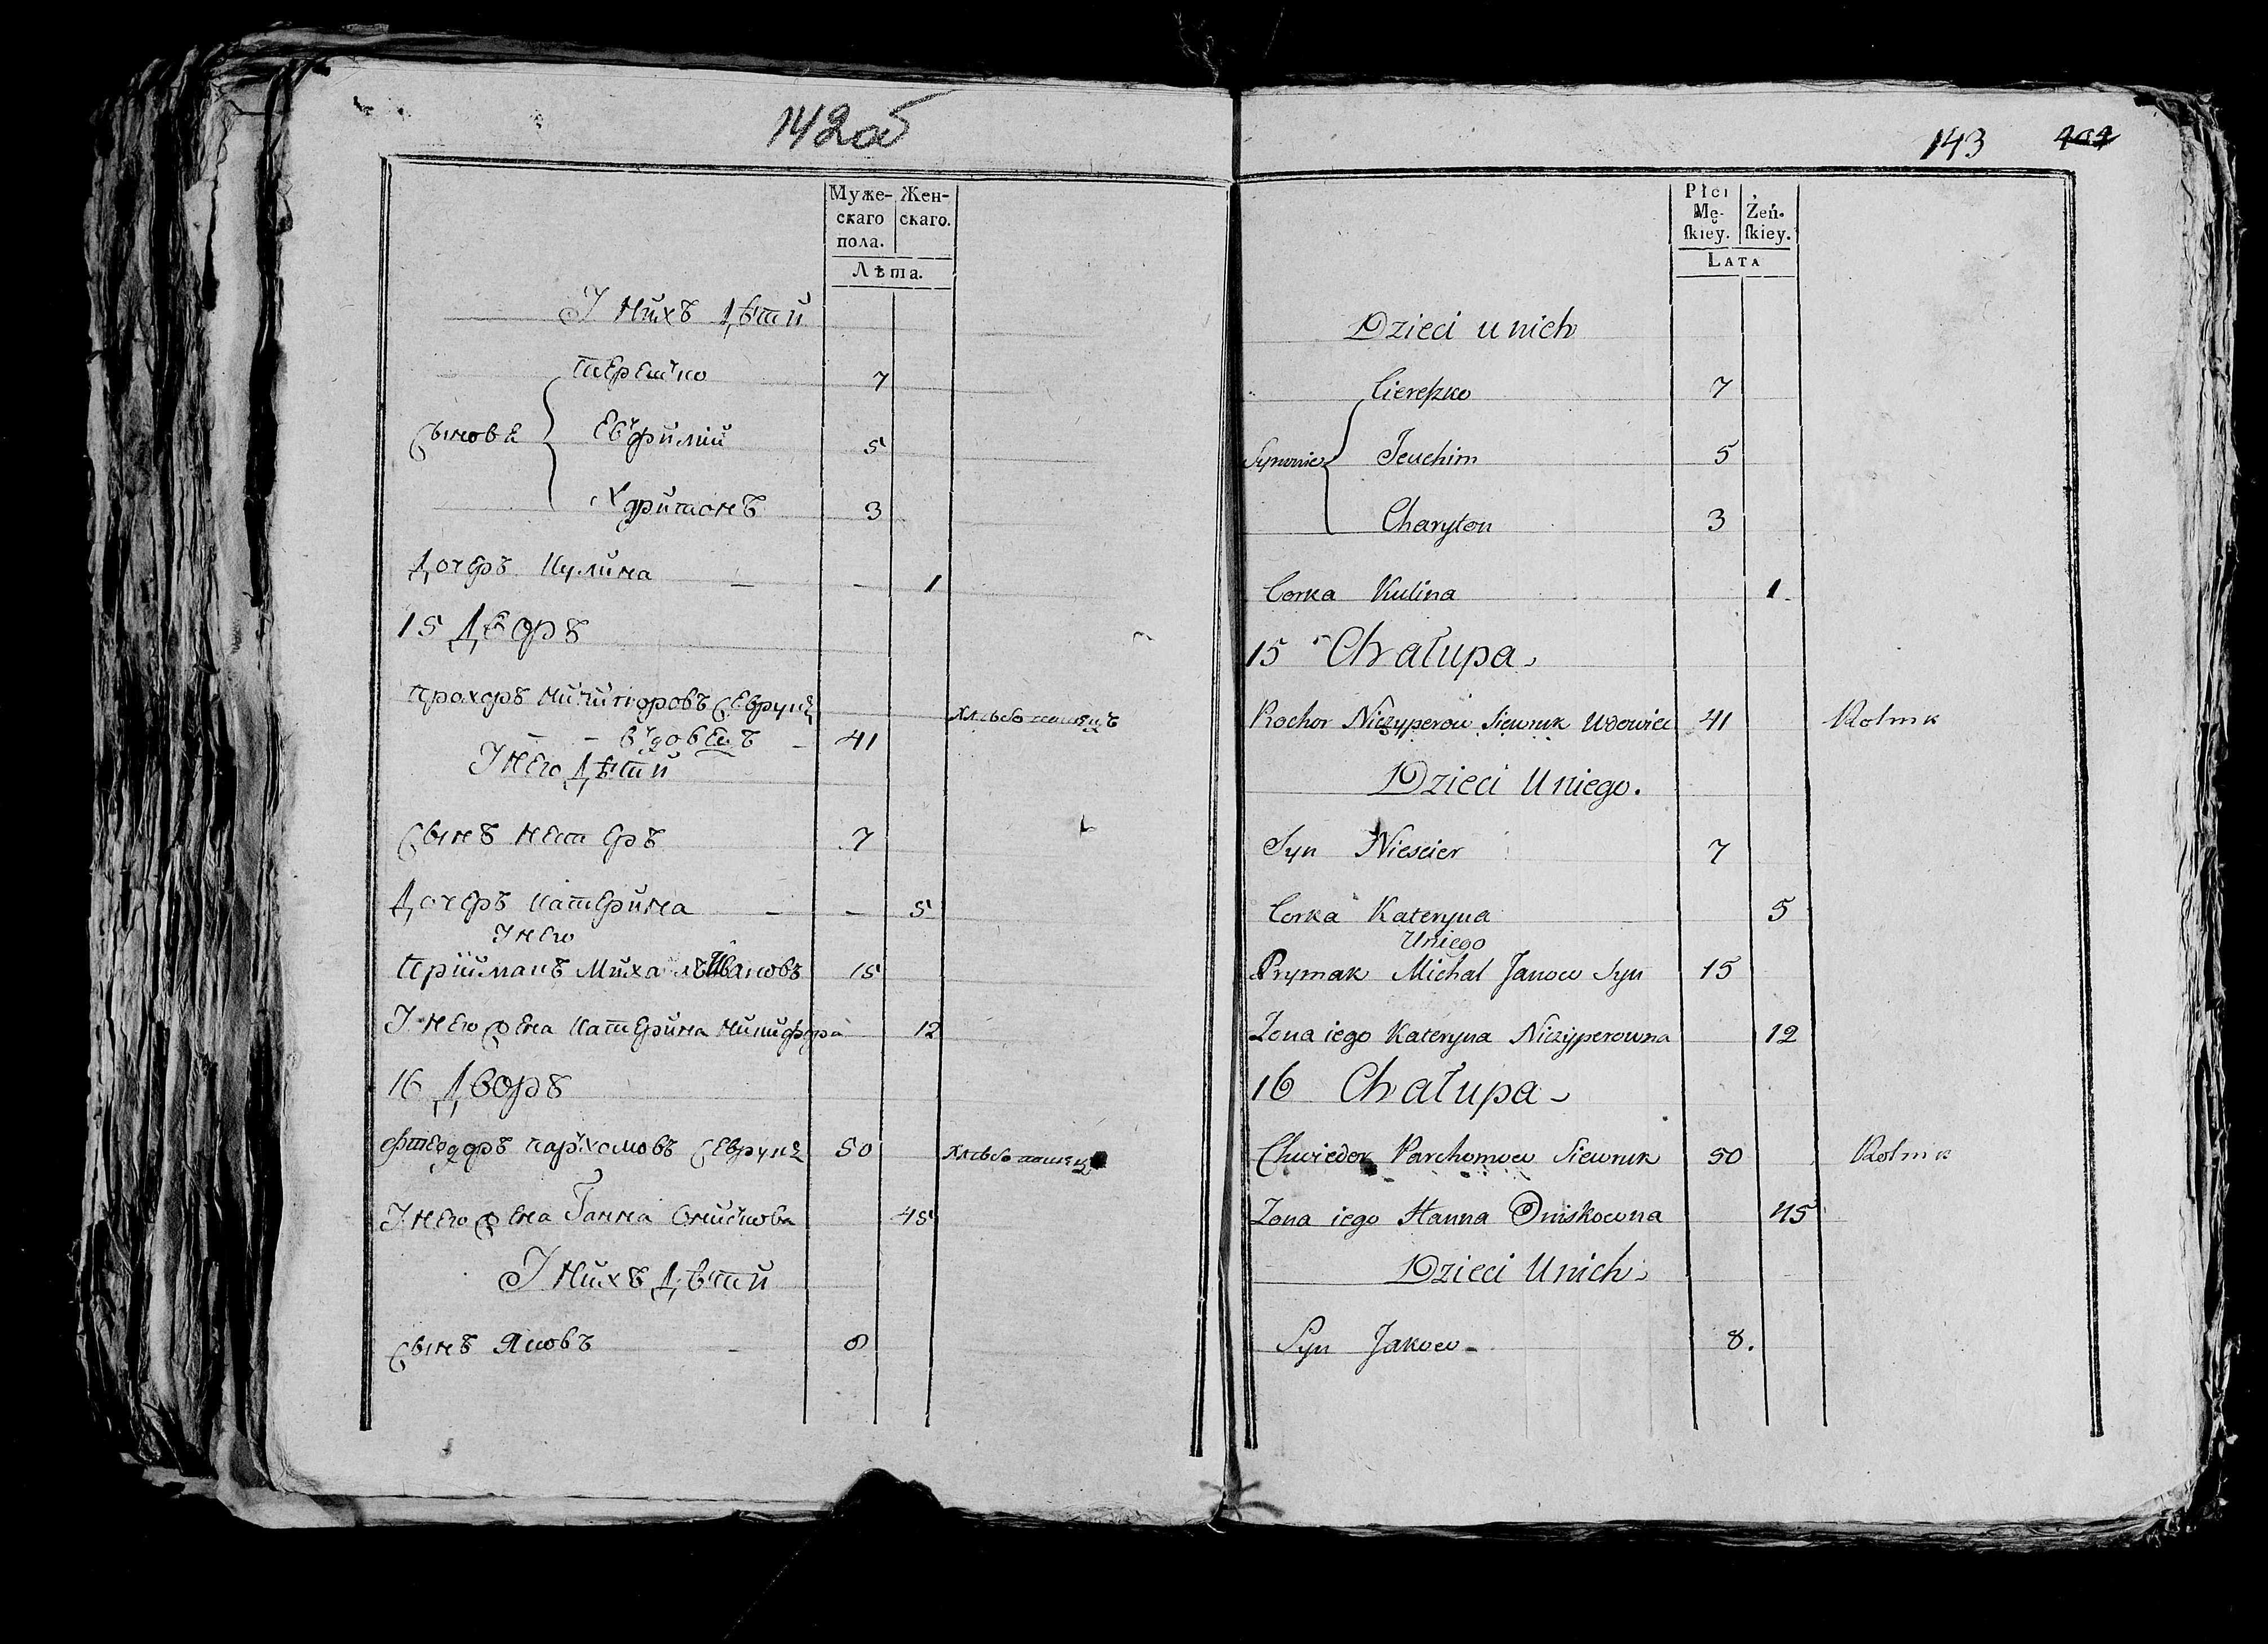 142об
Муже- Жен-
скаго скаго.
пола.
Лѣта.
У нихъ дѣти
терешко 7
Сынове Евфимій 5
Харитонъ 3
дочеръ Кулина — — 1
15 дворъ
Прохоръ Ничипоровъ Севрукъ хлѣбопашецъ
— — вдовецъ — 41
У него дѣти
Сынъ Нестеръ 7
дочеръ Катерина — — 5
У него
Прийманъ Михаилъ Ивановъ 15
У него жена Катерина 12
16 дворъ
Фтеодоръ пархомовъ Севрукъ 50 хлѣбопашецъ
У него жена Ганна 45
У нихъ дѣти
сынъ Яковъ — 8
143 404
Płci
Mę- Żeń-
ſkiey. ſkiey.
LATA
Dzieci u nich
Ciereſzko 7
Synowie Jeuchim 5
Charyton 3
Corka Kulina 1
15 Chałupa
Rochor Niczyperow Siewruk Udowiec 41 Rolnik
Dzieci U niego.
Syn Niescier 7
Corka Kateryna 5
U niego
Prymak Michał Janow Syn 15
Zona iego Kateryna Niczyperowna 12
16 Chałupa
Chwiedor Parchomow Siewruk 50 Rolnik
Zona iego Hanna Oniskowna 45
Dzieci U nich
Syn Jakow 8.